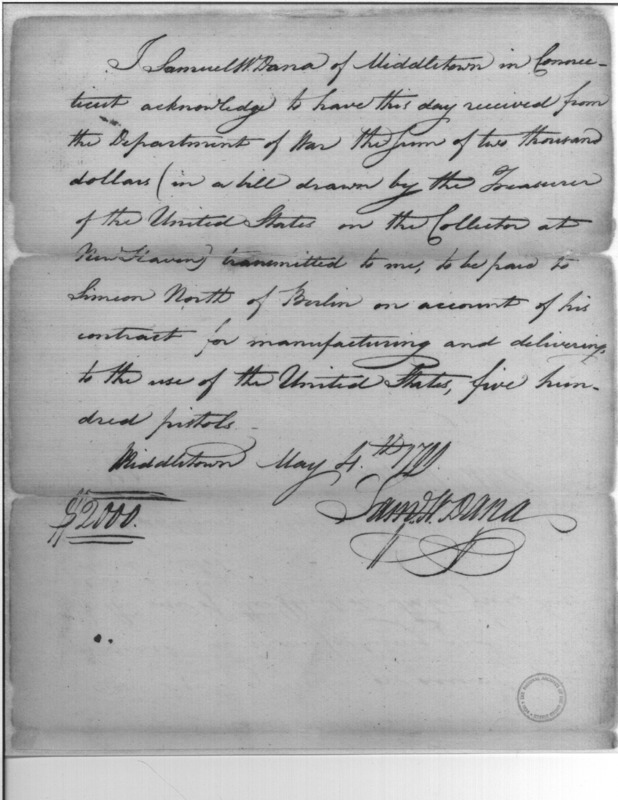 I Samuel W. Dana of Middletown in Connec-
ticut acknowledge to have this day received from
the Department of War the Sum of two thousand
dollars (in a bill drawn by the Treasurer
of the United States on the Collector at
New Haven) transmitted to me, to be paid to
Simeon North of Berlin on account of his
contract for manufacturing and delivering,
to the use of the United States, five hun-
dred pistols.
Middletown May 4.th 1799.
$2000.
Saml. W. Dana